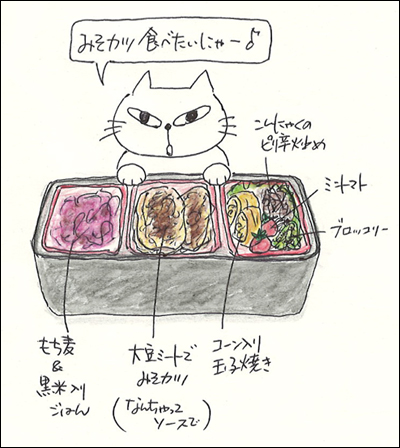 みそカツ食べたいにゃー♪
こんにゃくの
ピリ辛炒め
ミニトマト
ブロッコリー
もち麦
&
黒米入り
ごはん
大豆ミートで
みそカツ
(なんちゃって
ソースで)
コーン入り
玉子焼き